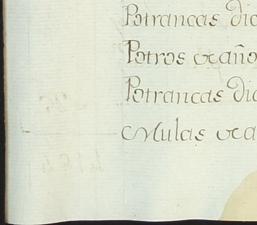 Potrancas dic
Potros de año
Potrancas dic
Mulas de a